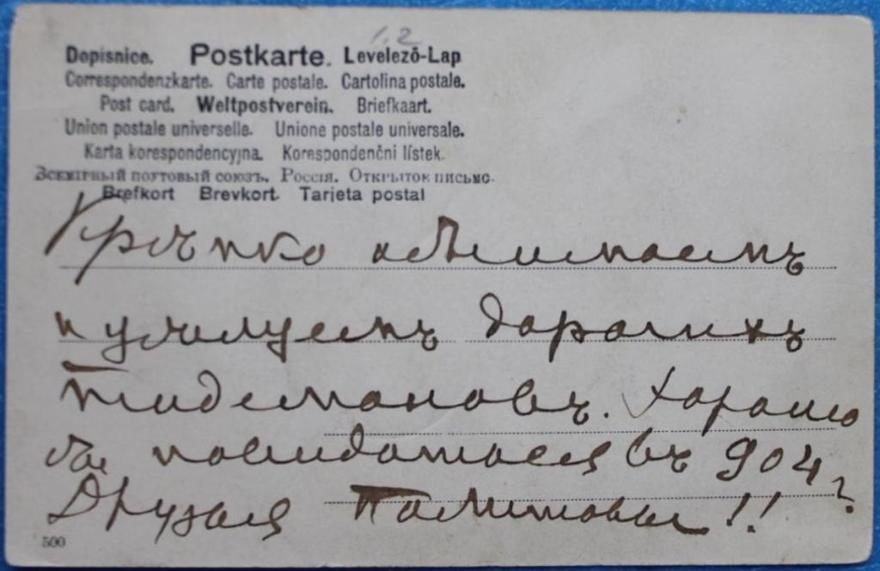 1.2
Dopisnice. Postkarte. Levelező-Lap
Correspondenzkarte. Carte postale. Cartolina postale.
Post card. Weltpostverein. Briefkaart.
Union postale universelle. Unione postale universale.
Karta korespondencyjna. Korespondenční lístek.
Всемірный почтовый союзъ. Россія. Открытое письмо.
Brefkort Brevkort. Tarjeta postal
Крѣпко обнимаемъ
и цѣлуемъ дорогихъ
Тидемановъ. Хорошо
бы повидаться въ 904 г.
Друзья !!
500